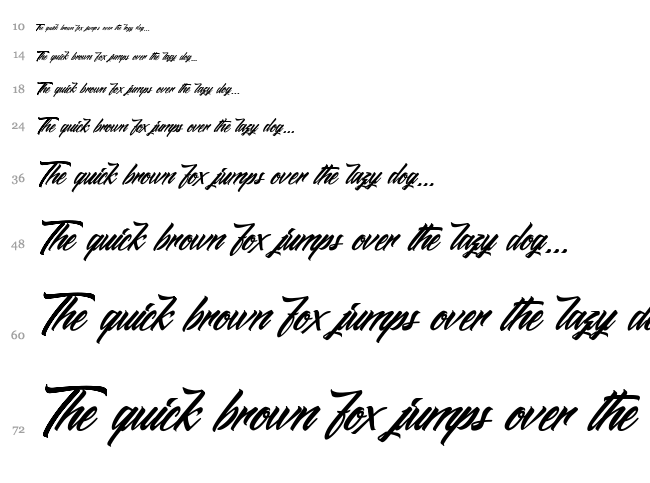 10 The quick brown fox jumps over the lazy dog...
14 The quick brown fox jumps over the lazy dog...
18 The quick brown fox jumps over the lazy dog...
24 The quick brown fox jumps over the lazy dog...
36 The quick brown fox jumps over the lazy dog...
48 The quick brown fox jumps over the lazy dog...
60 The quick brown fox jumps over the lazy do
72 The quick brown fox jumps over the